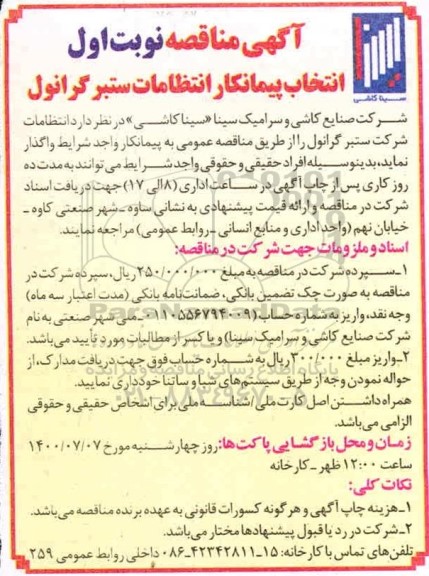 آگهی مناقصه نوبت اول
انتخاب پیمانکار انتظامات ستبر گرانول
سینا کاشی
شرکت صنایع کاشی و سرامیک سینا «سینا کاشی» در نظر دارد انتظامات
شرکت ستبر گرانول را از طریق مناقصه عمومی به پیمانکار واجد شرایط واگذار
نماید، بدینوسیله افراد حقیقی و حقوقی واجد شرایط می توانند به مدت ده
روز کاری پس از چاپ آگهی در ساعت اداری (۸ الی ۱۷) جهت دریافت اسناد
شرکت در مناقصه و ارائه قیمت پیشنهادی به نشانی ساوه - شهر صنعتی کاوه -
خیابان نهم (واحد اداری و منابع انسانی - روابط عمومی) مراجعه نمایند.
اسناد و ملزومات جهت شرکت در مناقصه:
۱- سپرده شرکت در مناقصه به مبلغ ۲۵۰/۰۰۰/۰۰۰ ریال، سپرده شرکت در
مناقصه به صورت چک تضمین بانکی، ضمانت‌نامه بانکی (مدت اعتبار سه ماه)
وجه نقد، واریز به شماره حساب ملی شهر صنعتی به نام
شرکت صنایع کاشی و سرامیک سینا) و یا کسر از مطالبات مورد تأیید می باشد.
۲- واریز مبلغ ۳۰۰/۰۰۰ ریال به شماره حساب فوق جهت دریافت مدارک، از
حواله نمودن وجه از طریق سیستم های شبا و ساتنا خودداری نمایید.
همراه داشتن اصل کارت ملی / شناسه ملی برای اشخاص حقیقی و حقوقی
الزامی می باشد.
زمان و محل بازگشایی پاکت ها: روز چهارشنبه مورخ ۱۴۰۰/۰۷/۰۷
ساعت ۱۲:۰۰ ظهر - کارخانه
نکات کلی:
۱- هزینه چاپ آگهی و هرگونه کسورات قانونی به عهده برنده مناقصه می باشد.
۲- شرکت در رد یا قبول پیشنهادها مختار می باشد.
تلفن های تماس با کارخانه: ۱۵-۴۲۳۴۲۸۱۱-۰۸۶ داخلی روابط عمومی ۲۵۹